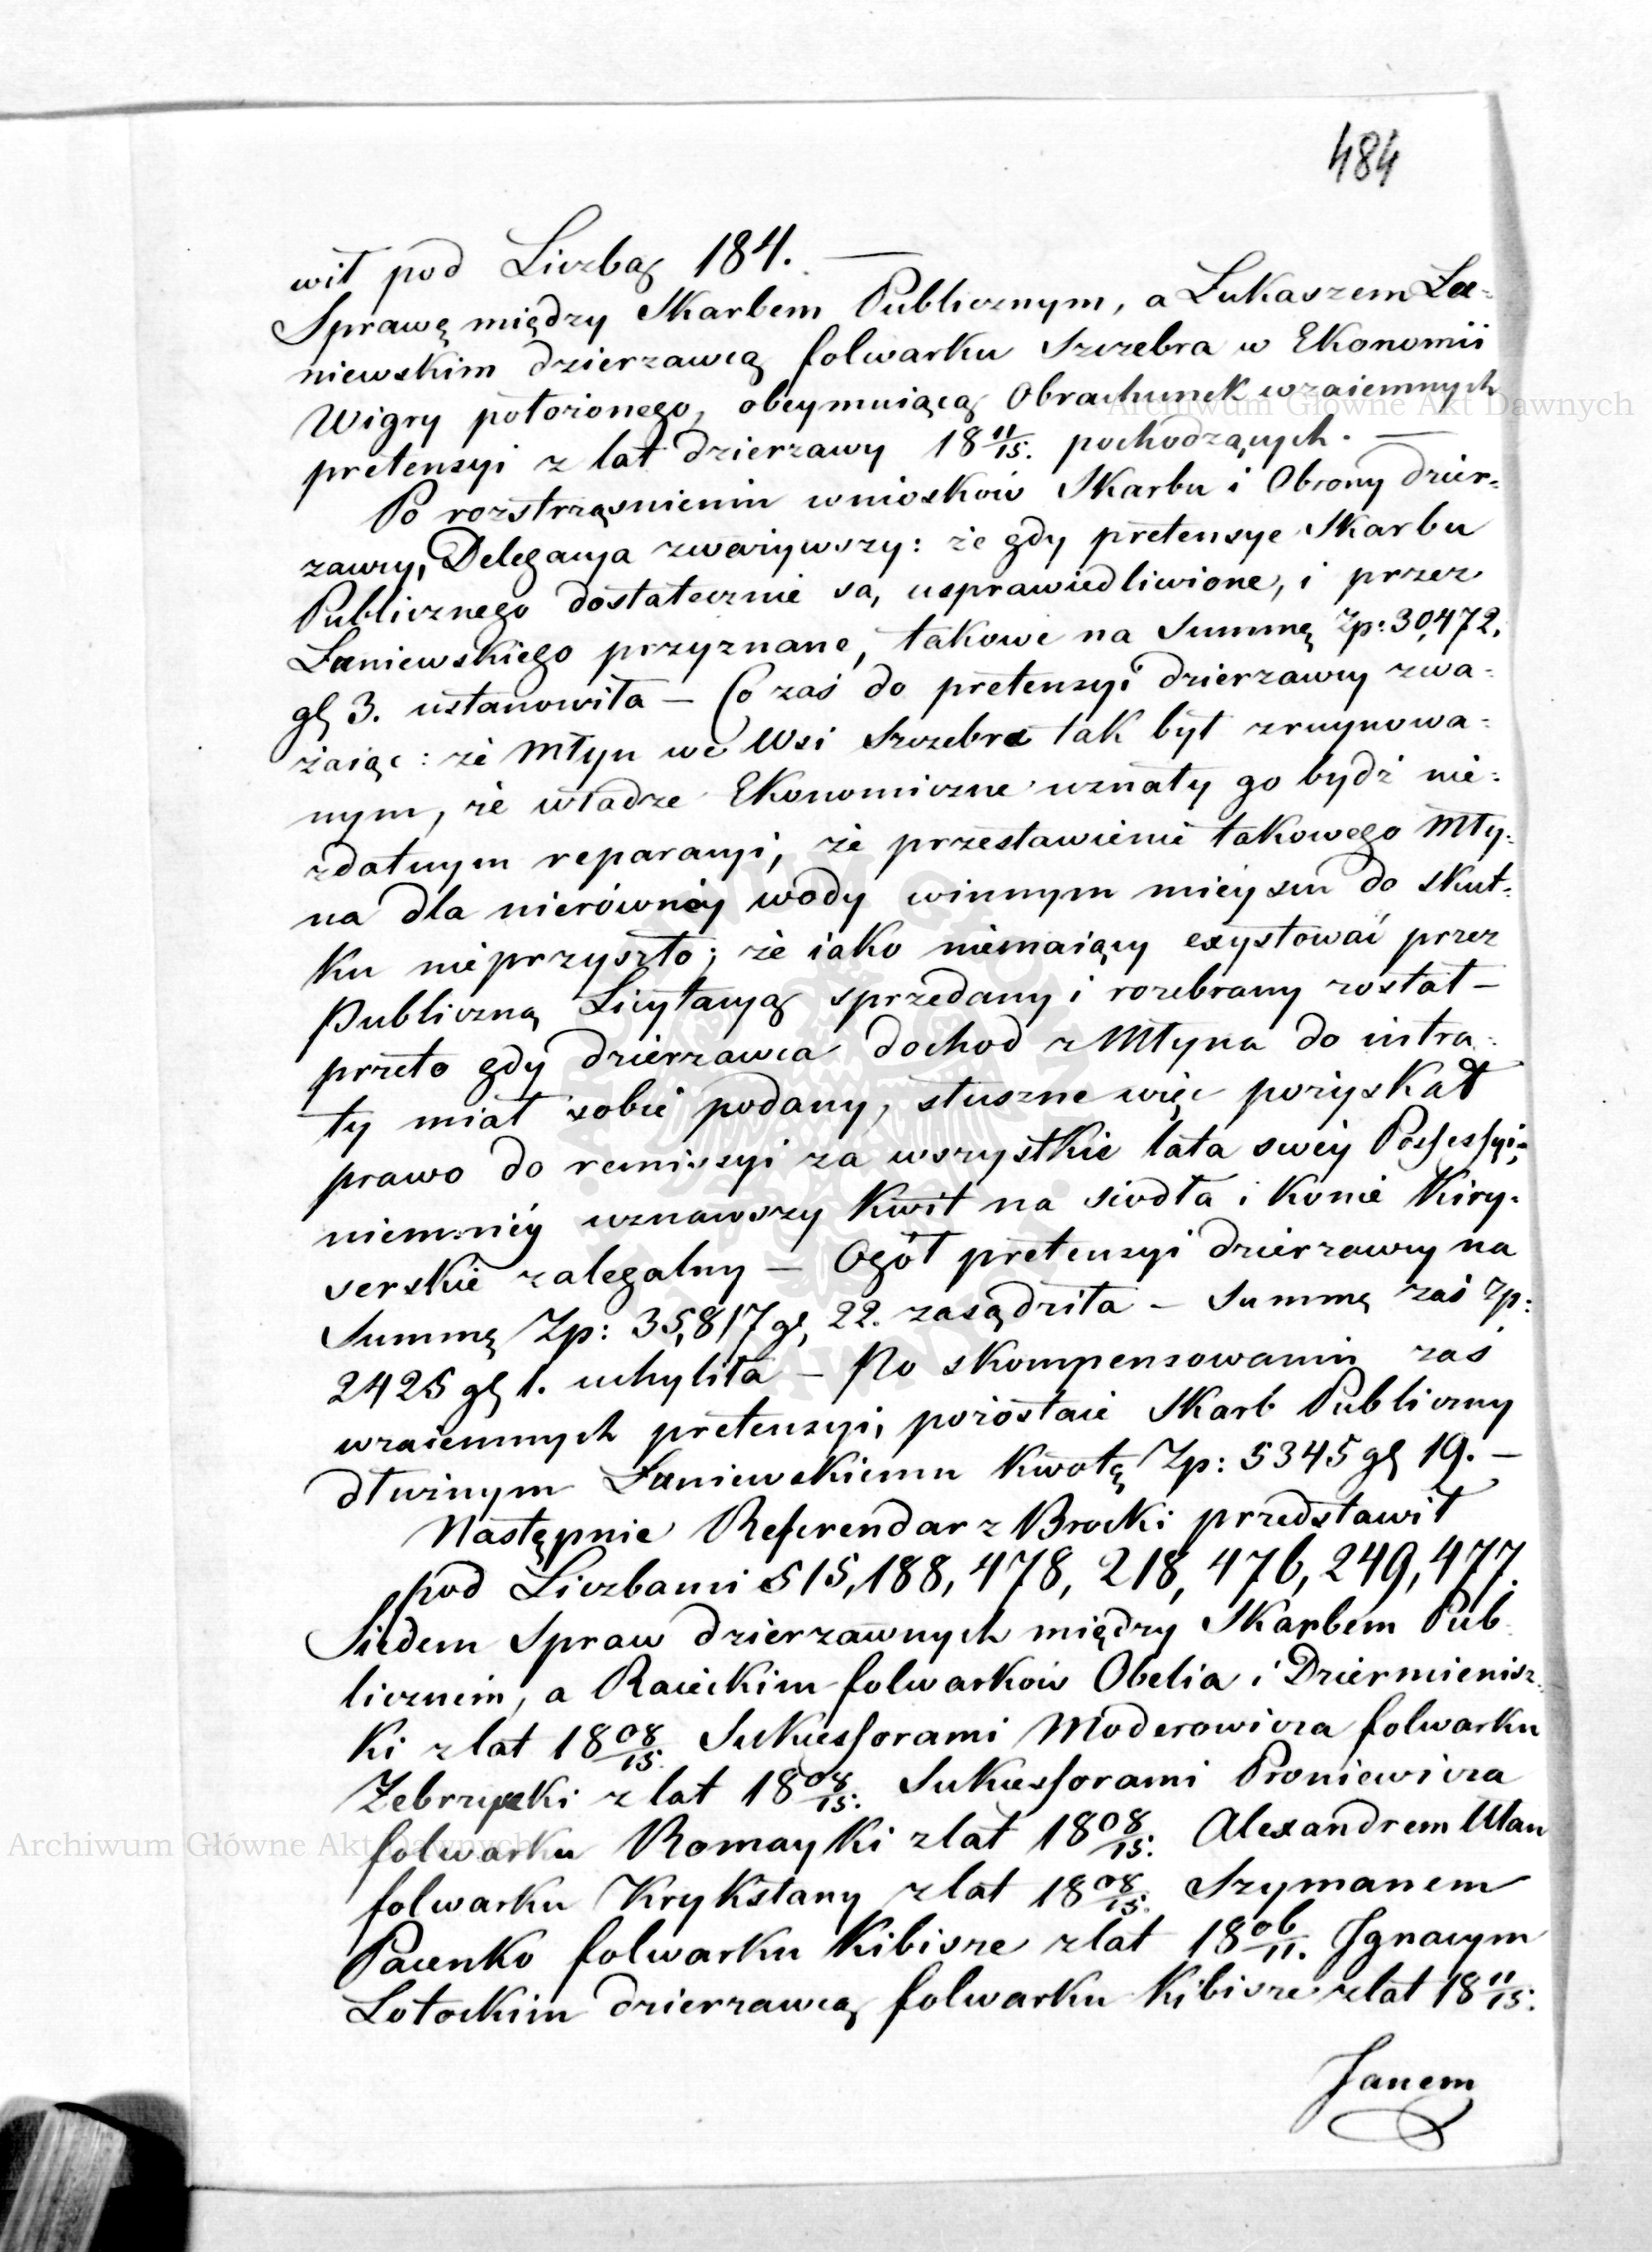 484
wit pod Liczbą 184. —
Sprawę między Skarbem Publicznym, a ŁukaszemŁa-
niewskim dzierzawcą folwarku Szczebra w Ekonomii
Wigry położonego, obeymuiącą Obrachunek wzaiemnych
pretensyi z lat dzierzawy 18 11/15. pochodzących. —
Po rozstrząśnieniu wniosków Skarbu i Obrony dzier-
zawcy, Delegacya zważywszy: że gdy pretensye Skarbu
Publicznego dostatecznie są, usprawiedliwione, i przez
Łaniewskiego przyznane, takowe na Summę Zp: 30,472.
gł 3. ustanowiła — Co zaś do pretensyi dzierzawcy zwa-
żaiąc: że Młyn we Wsi Szczebra tak był zruynowa-
nym, że władze Ekonomiczne uznały go bydź nie-
zdatnym reparacyi, że przestawienie takowego Mły-
na dla nierówney wody w innym mieyscu do skut-
ku nieprzyszło; że iako niemaiący exystować przez
Publiczną Licytacyą sprzedany i rozebrany został —
przeto gdy dzierzawca dochod z Młyna do intra-
ty miał sobie podany, słuszne więc pozyskał
prawo do remissyi za wszystkie lata swey Possessyi;
niemniéy uznawszy Kwit na siodła i Konie Kiry-
serskie zalegalny — Ogół pretensyi dzierzawcy na
Summę Zp: 35,817 gł, 22. zasądziła — Summę zaś Zp:
2425 gł 1. uchyliła — Po skompensowaniu zaś
wzaiemnych pretensyi, pozostaie Skarb Publiczny
dłużnym Łaniewskiemu Kwotę Zp: 5345 gł 19. —
Następnie Referendarz Brocki przedstawił
pod Liczbami 515, 188, 478, 218, 476, 249, 477.
Siedem Spraw dzierzawnych między Skarbem Pub-
licznem, a Raieckim folwarków Obelia i Dziermienisz-
ki z lat 18 08/15. Sukcessorami Moderowicza folwarku
Zebrzyski z lat 18 08/15. Sukcessorami Proniewicza
folwarku Romayki z lat 18 08/15. Alexandrem Ułan
folwarku Krykstany z lat 18 08/15. Szymanem
Pacenko folwarku Kibisze z lat 18 06/11. Ignacym
Łotockim dzierzawcą folwarku Kibisze z lat 18 11/15.
Janem
Archiwum Główne Akt Dawnych
Archiwum Główne Akt Dawnych